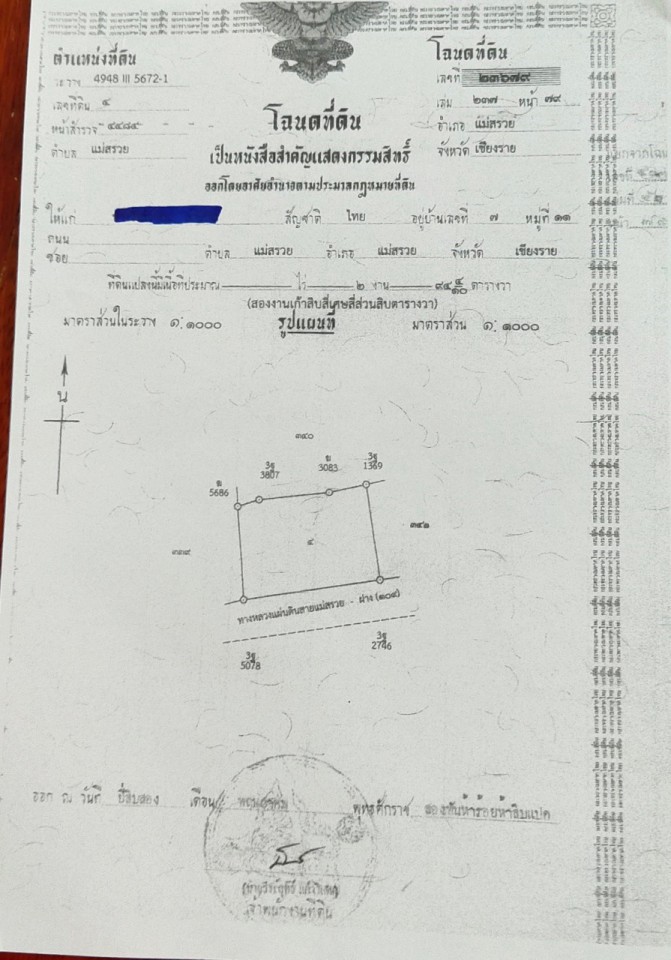 ตำแหน่งที่ดิน
ระวาง 4948 III 5672-1
เลขที่ดิน ๔
หน้าสำรวจ ๔๔๘๕
ตำบล แม่สรวย
โฉนดที่ดิน
เลขที่ ๒๓๖๗๙
เล่ม ๒๓๗ หน้า ๗๙
อำเภอ แม่สรวย
จังหวัด เชียงราย
โฉนดที่ดิน
เป็นหนังสือสำคัญแสดงกรรมสิทธิ์
ออกโดยอาศัยอำนาจตามประมวลกฎหมายที่ดิน
ให้แก่ สัญชาติ ไทย อยู่บ้านเลขที่ ๗ หมู่ที่ ๑๑
ถนน
ซอย ตำบล แม่สรวย อำเภอ แม่สรวย จังหวัด เชียงราย
ที่ดินแปลงนี้มีเนื้อที่ประมาณ ไร่ ๒ งาน ๙๔ ๔/๑๐ ตารางวา
(สองงานเก้าสิบสี่เศษสี่ส่วนสิบตารางวา)
มาตราส่วนในระวาง ๑:๑๐๐๐ รูปแผนที่ มาตราส่วน ๑:๑๐๐๐
น
๓๔๐
5686
3ฐ
3807
3083
3ฐ
1369
๓๓๙
๔
๓๔๑
ทางหลวงแผ่นดินสายแม่สรวย - ฝาง (๑๐๙)
3ฐ
5078
3ฐ
2746
ออก ณ วันที่ ยี่สิบสอง เดือน พุทธศักราช สองพันห้าร้อยห้าสิบแปด
เจ้าพนักงานที่ดิน